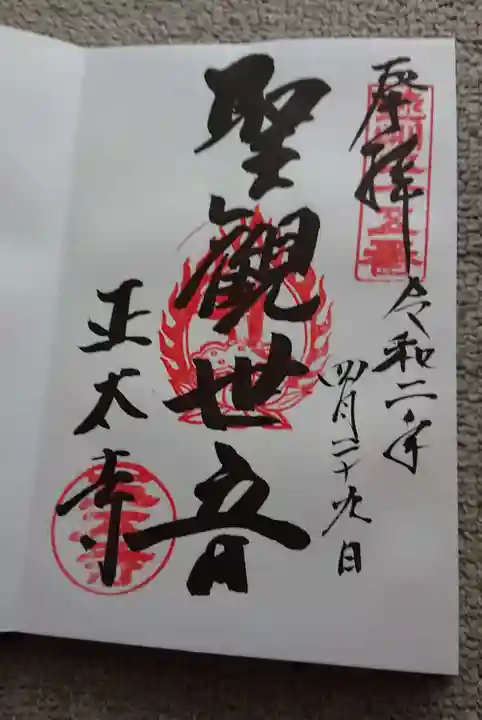 奉拝
令和二年
四月二十九日
聖観世音
正太寺